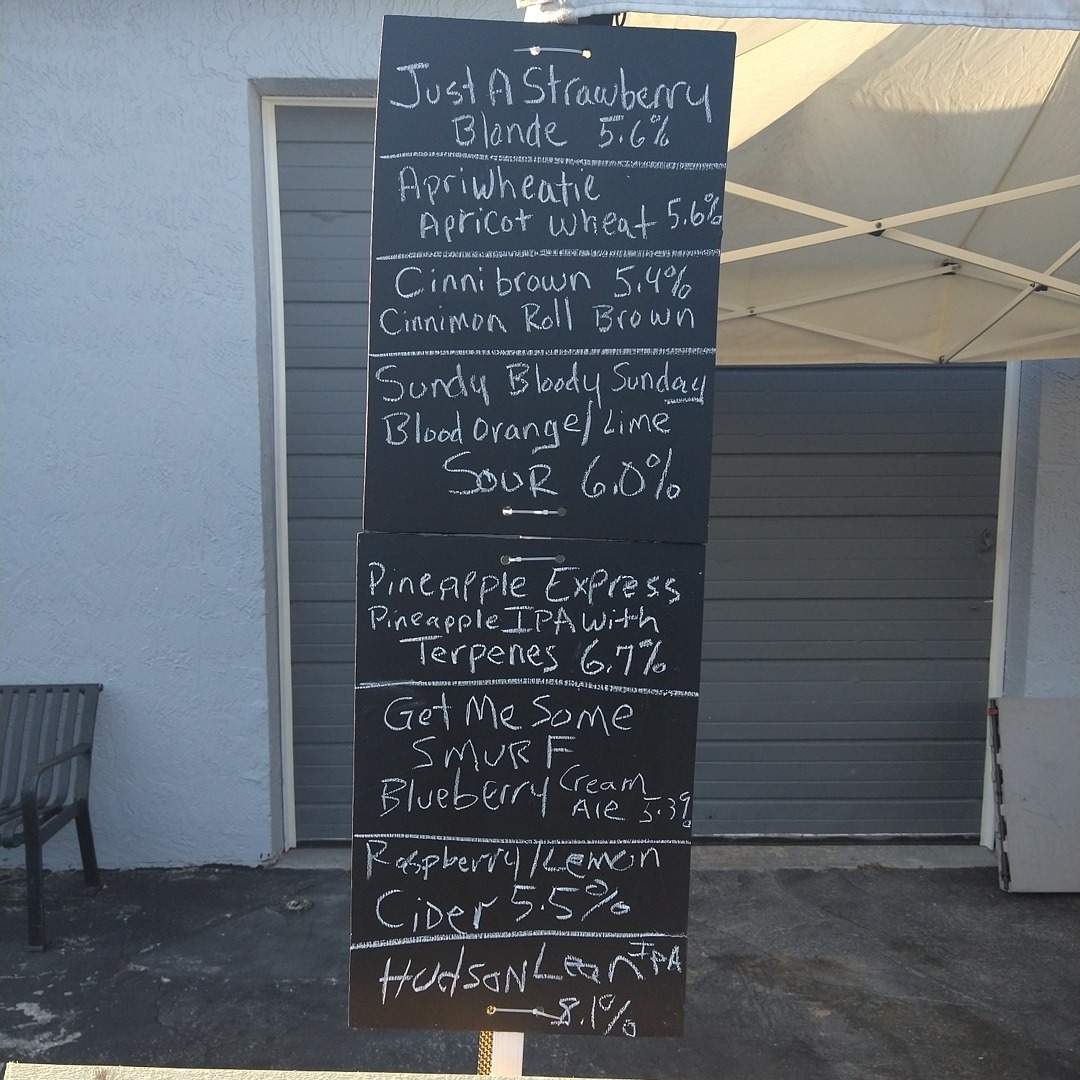 Just A Strawberry
Blonde 5.6%
Apriwheatie
Apricot Wheat 5.6%
Cinnibrown 5.4%
Cinnimon Roll Brown
Sundy Bloody Sunday
Blood Orange/Lime
SOUR 6.0%
Pineapple Express
Pineapple IPA with
Terpenes 6.7%
Get Me Some
SMURF
Blueberry Cream
Ale 5.3%
Raspberry/Lemon
Cider 5.5%
Hudson Lean IPA
8.1%